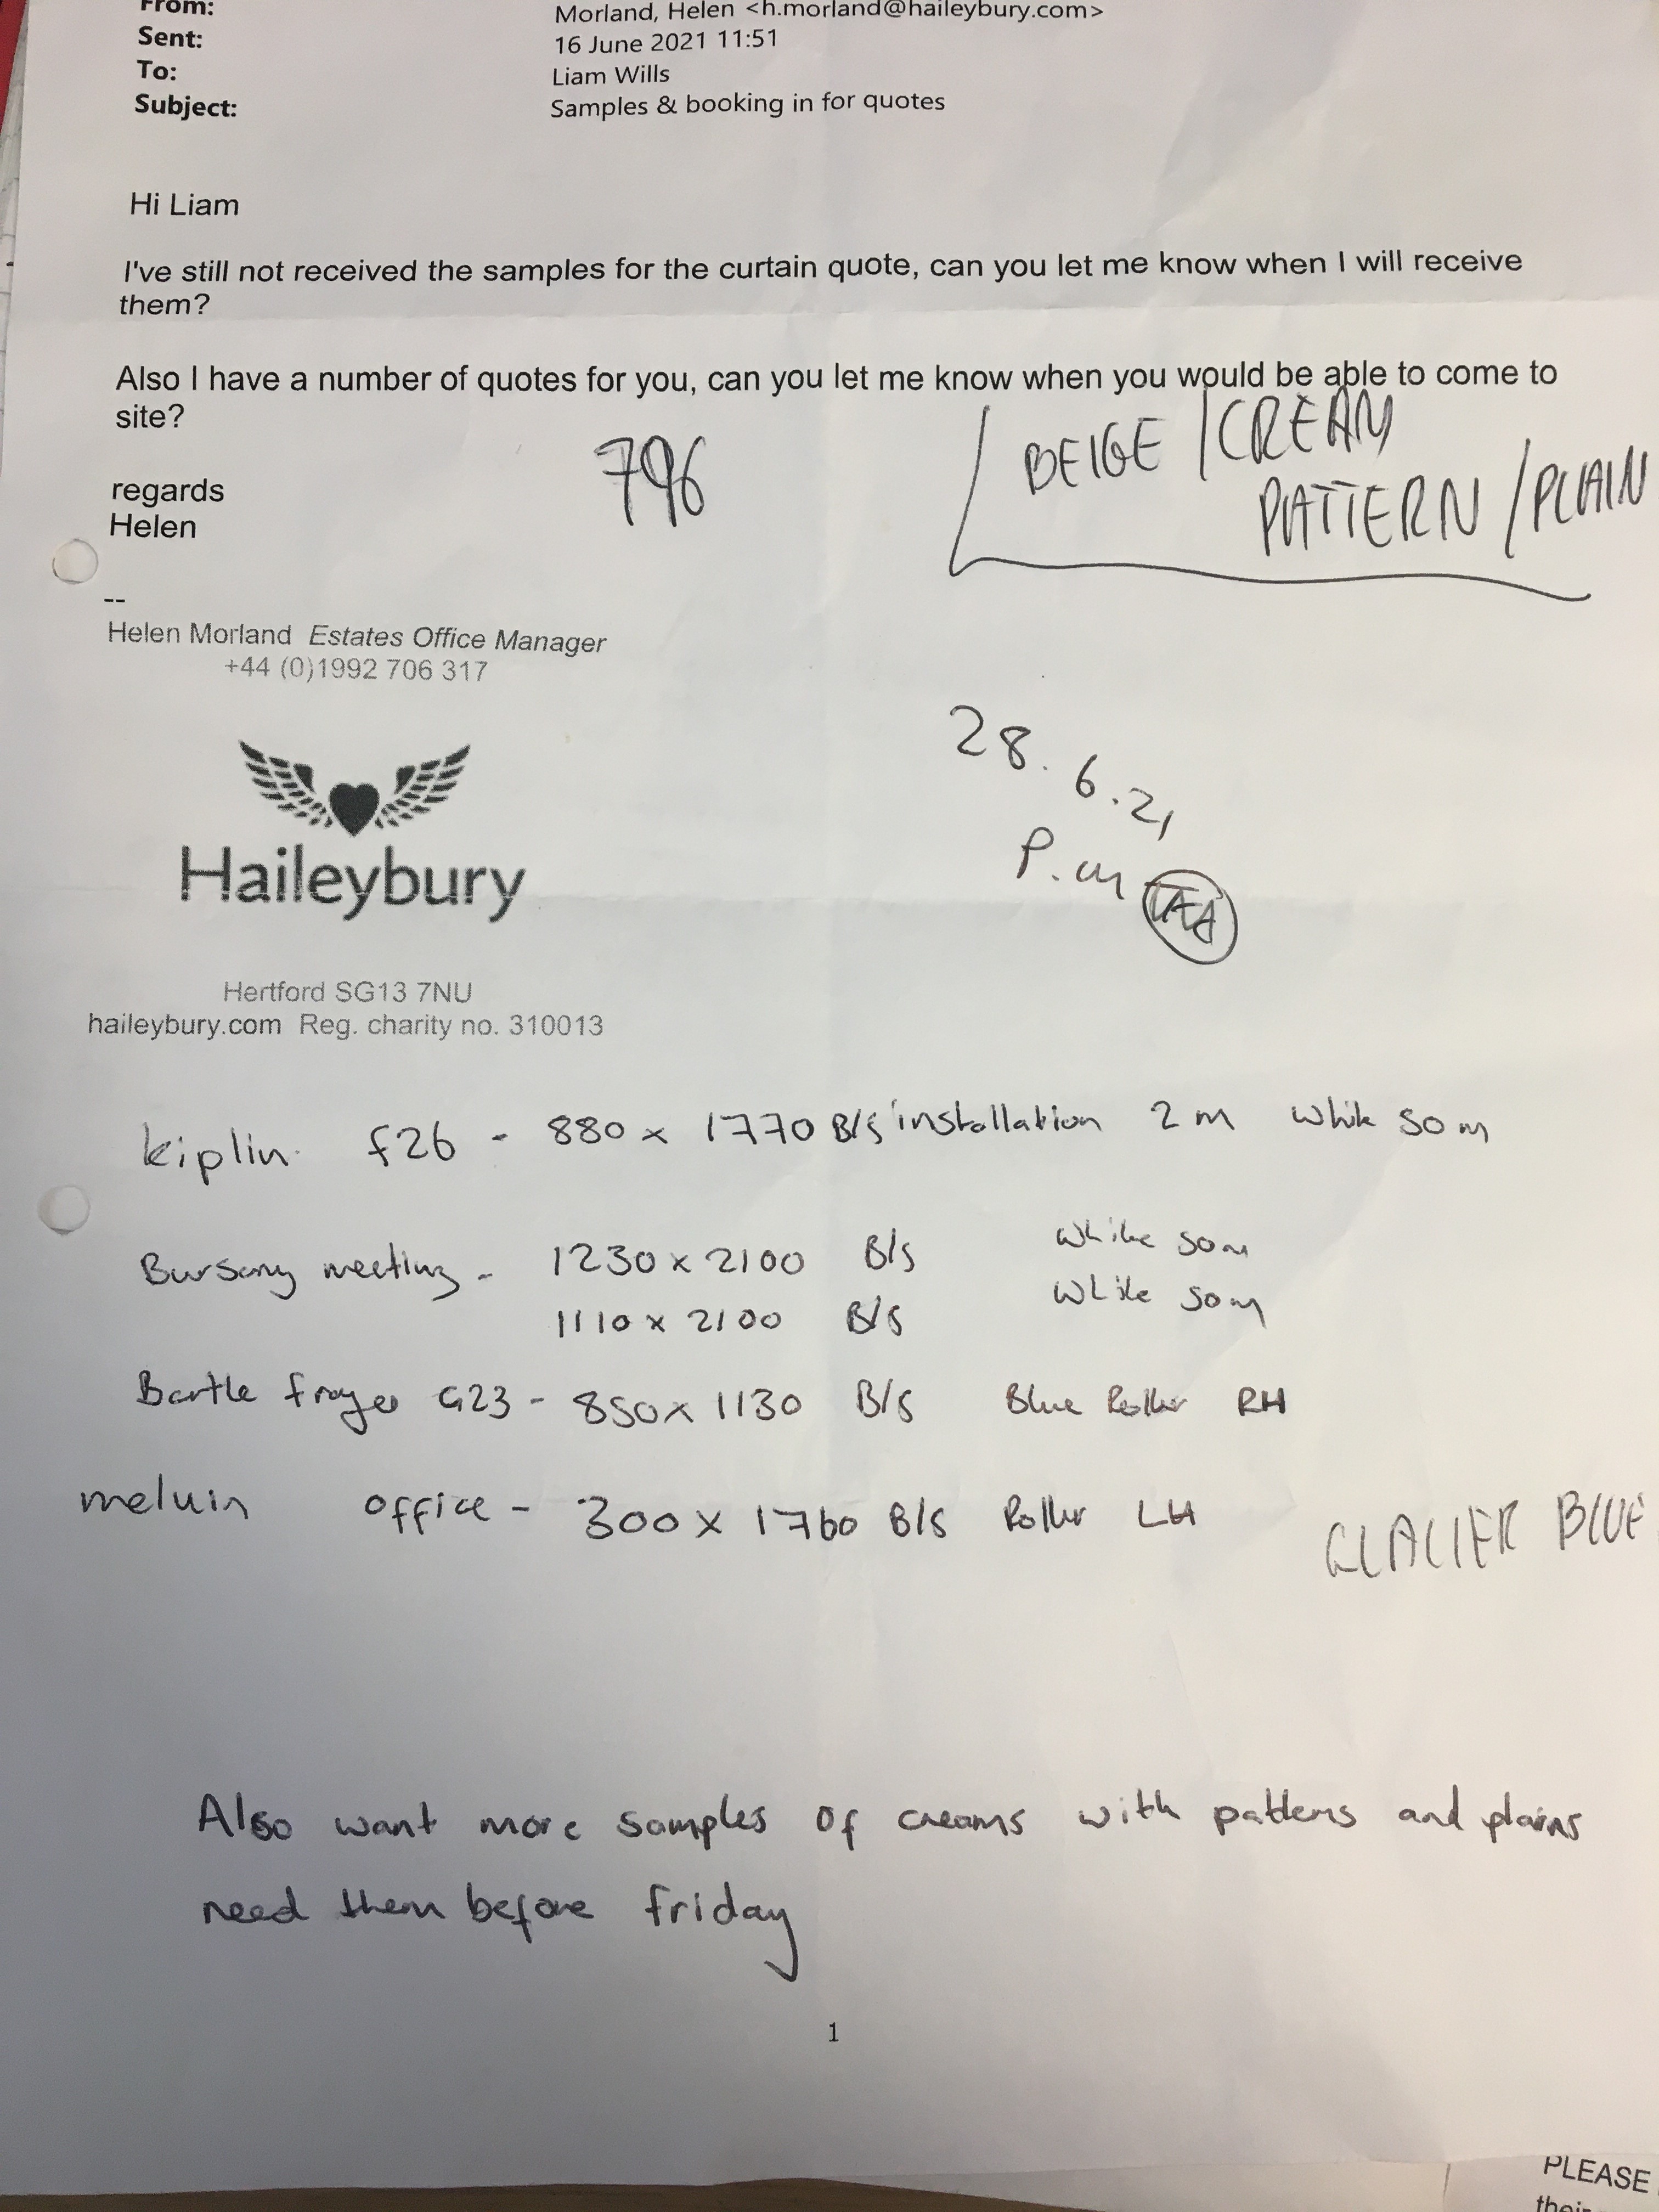 From: Morland, Helen <h.morland@haileybury.com>
Sent: 16 June 2021 11:51
To: Liam Wills
Subject: Samples & booking in for quotes
Hi Liam
I've still not received the samples for the curtain quote, can you let me know when I will receive
them?
Also I have a number of quotes for you, can you let me know when you would be able to come to
site?
796
BEIGE / CREAM
PATTERN / PLAIN
regards
Helen
--
Helen Morland Estates Office Manager
+44 (0)1992 706 317
28.6.21
P.m
Haileybury
Hertford SG13 7NU
haileybury.com Reg. charity no. 310013
kiplin f26 - 880 x 1770 B/S installation 2m white 50m
Bursary meeting - 1230 x 2100 B/S white 50m
1110 x 2100 B/S white 50m
Bartle G23 - 850 x 1130 B/S Blue Roller RH
melvin office - 300 x 1760 B/S Roller LH
GLACIER BLUE
Also want more samples of creams with patterns and plains
need them before friday
1
PLEASE